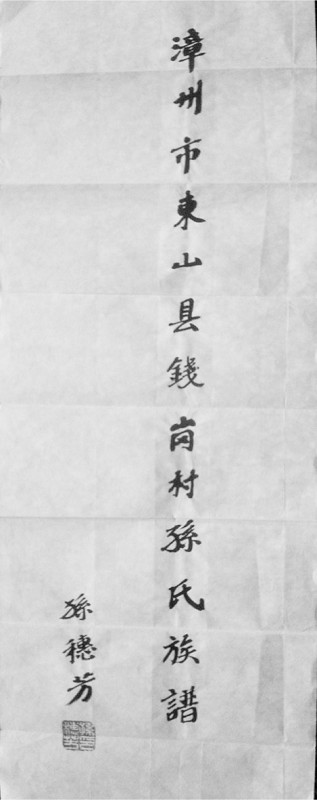 漳州市東山县錢岗村孫氏族譜
孫穗芳